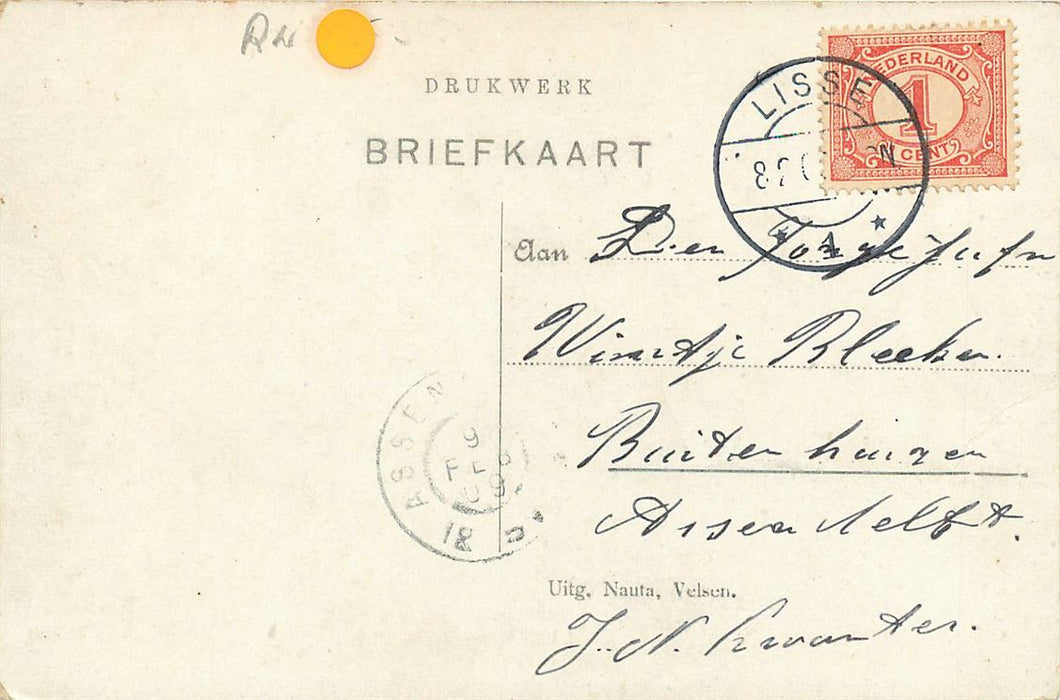 DRUKWERK
BRIEFKAART
NEDERLAND
1
CENT
LISSE
8 2
N
1
Aan Den Jonge Jufr
Wimtje Bleeker.
Buitenhuizen
Assendelft.
ASSEN
9
FEB
09
18
Uitg. Nauta, Velsen.
J. N. Kwanten.